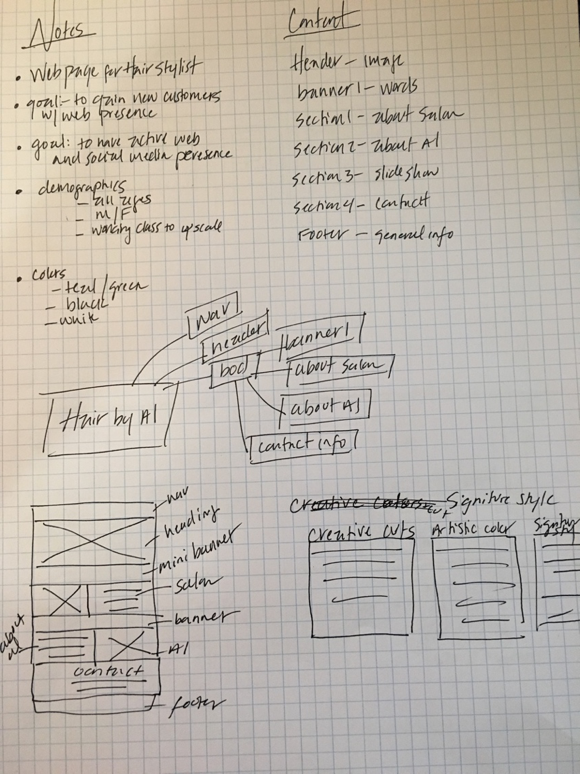 Notes
• Web page for Hair Stylist
• goal:- to gain new customers
w/ web presence
• goal: to have active web
and social media peresence
• demographics
- all ages
- M/F
- working class to upscale
• colors
- teal/green
- black
- whit
Content
Header - image
banner 1 - words
section 1 - about Salon
section 2 - about Al
section 3 - slide show
section 4 - contact
Footer - general info
Hair by Al
nav
header
body
banner 1
about Salon
about Al
contact info
nav
heading
mini banner
Salon
banner
about
al
Al
contact
footer
Creative Signiture style
cut
Creative cuts
Artistic color